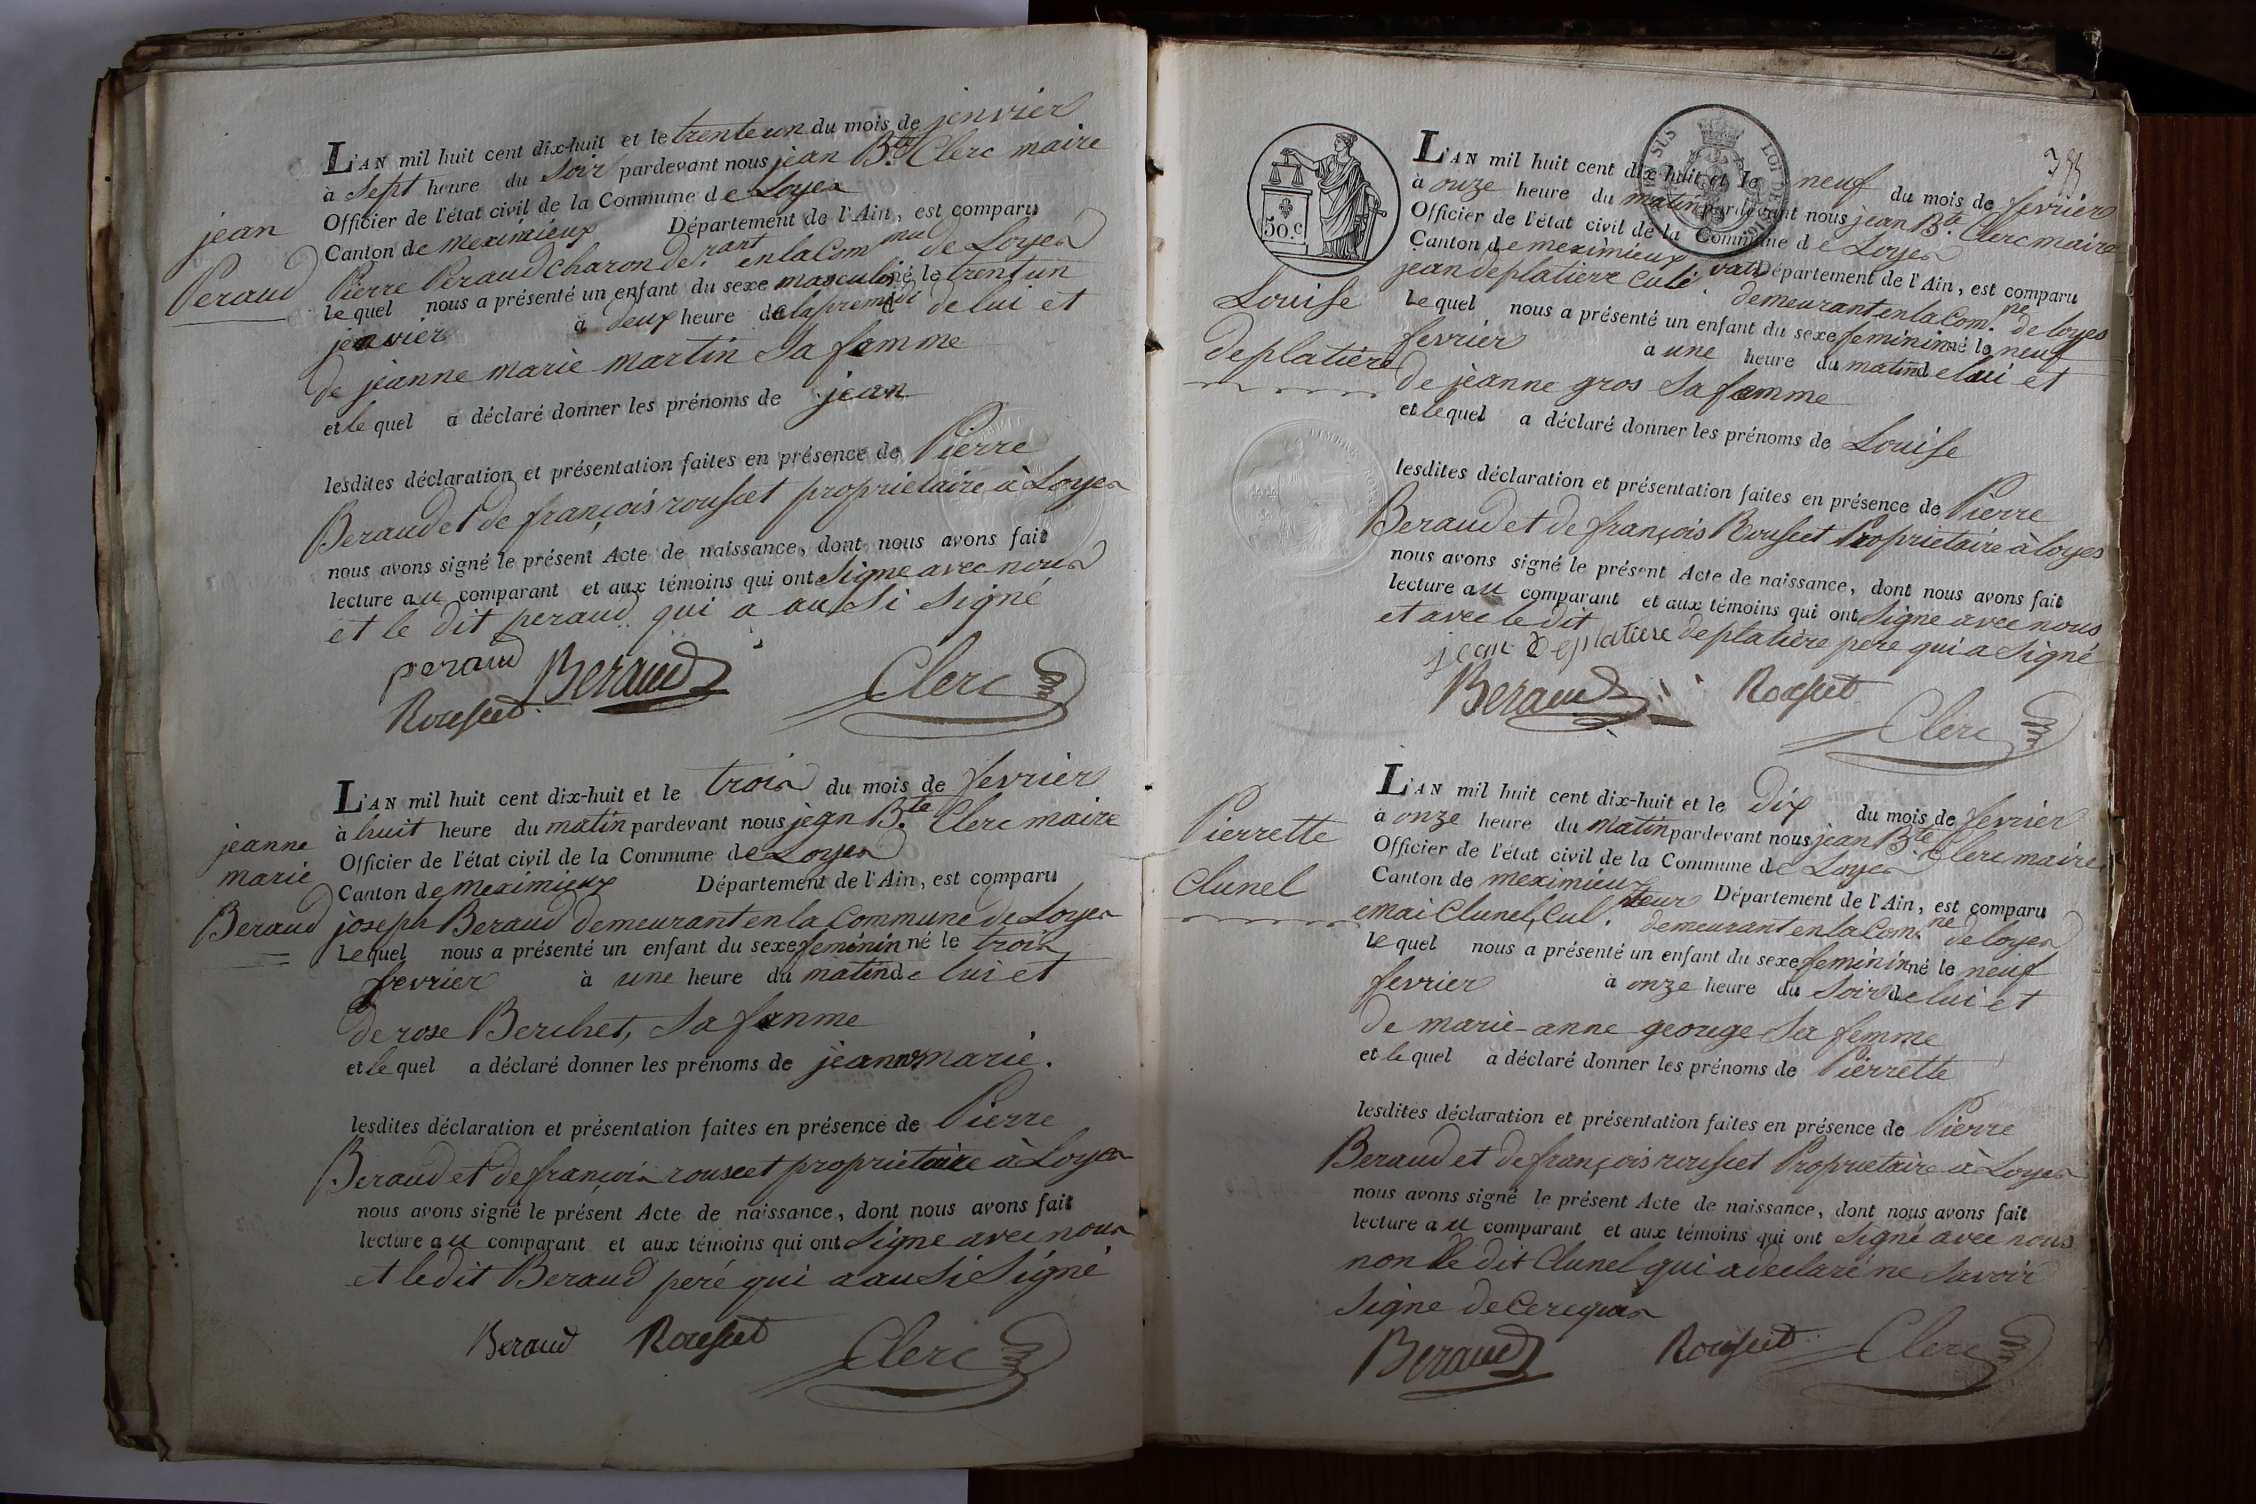 jean
Peraud
L'AN mil huit cent dix-huit et le trente un du mois de jenvier
à sept heure du soir pardevant nous jean B.te Clerc maire
Officier de l'état civil de la Commune de Loyes
Canton de meximieux Département de l'Ain, est comparu
Pierre Peraud charon de en la Com de Loyes
lequel nous a présenté un enfant du sexe masculin né le trent un
jenvier à deux heure de la premidi de lui et
de jeanne marie martin Sa femme
et le quel a déclaré donner les prénoms de jean
lesdites déclaration et présentation faites en présence de Pierre
Beraud et de françois rouscet proprietaire à Loyes
nous avons signé le présent Acte de naissance, dont nous avons fait
lecture au comparant et aux témoins qui ont Signe avec nous
et le dit peraud qui a ausi signé
peraud Beraud Clerc
Rouscet
jeanne
marie
Beraud
L'AN mil huit cent dix-huit et le trois du mois de fevrier
à huit heure du matin pardevant nous jean B.te Clerc maire
Officier de l'état civil de la Commune de Loyes
Canton de meximieux Département de l'Ain, est comparu
joseph Beraud demeurant en la Commune de Loyes
Lequel nous a présenté un enfant du sexe feminin né le trois
fevrier à une heure du matin de lui et
de rose Berchet, Sa fanme
et le quel a déclaré donner les prénoms de jeanne marie.
lesdites déclaration et présentation faites en présence de Pierre
Beraud et de françois rouscet proprietaire à Loyes
nous avons signé le présent Acte de naissance, dont nous avons fait
lecture au comparant et aux témoins qui ont Signe avec nous
et ledit Beraud peré qui a ausi Signé
Beraud Rouscet Clerc
50.c
Louise
deplatière
L'AN mil huit cent dix-huit et le neuf du mois de fevrier
à onze heure du matin pardevant nous jean B.te Clerc maire
Officier de l'état civil de la Commune de Loyes
Canton de meximieux Département de l'Ain, est comparu
jean deplatiere culti vat demeurant en la Com.ne de loyes
Le quel nous a présenté un enfant du sexe feminin né le neuf
fevrier à une heure du matin de lui et
de jèanne gros Sa femme
et le quel a déclaré donner les prénoms de Louise
lesdites déclaration et présentation faites en présence de Pierre
Beraud et de françois Rouscet Proprietaire à loyes
nous avons signé le présent Acte de naissance, dont nous avons fait
lecture au comparant et aux témoins qui ont Signe avec nous
et avec le dit deplatière pere qui a signé
jean Deplatiere
Beraud Rouscet
Clerc
Pierrette
Clunel
L'AN mil huit cent dix-huit et le dix du mois de fevrier
à onze heure du matin pardevant nous jean B.te Clerc maire
Officier de l'état civil de la Commune de Loyes
Canton de meximieux Département de l'Ain, est comparu
emai Clunel, Cul. teur demeurant en la Com.ne de loyes
le quel nous a présenté un enfant du sexe feminin né le neuf
fevrier à onze heure du Soir de lui et
de marie-anne george Sa femme
et le quel a déclaré donner les prénoms de Pierrette
lesdites déclaration et présentation faites en présence de Pierre
Beraud et de françois rouscet Proprietaire à Loyes
nous avons signé le présent Acte de naissance, dont nous avons fait
lecture au comparant et aux témoins qui ont signé avec nous
non le dit Clunel qui a declaré ne Savoir
Signe de Ce requis
Beraud Rouscet Clerc